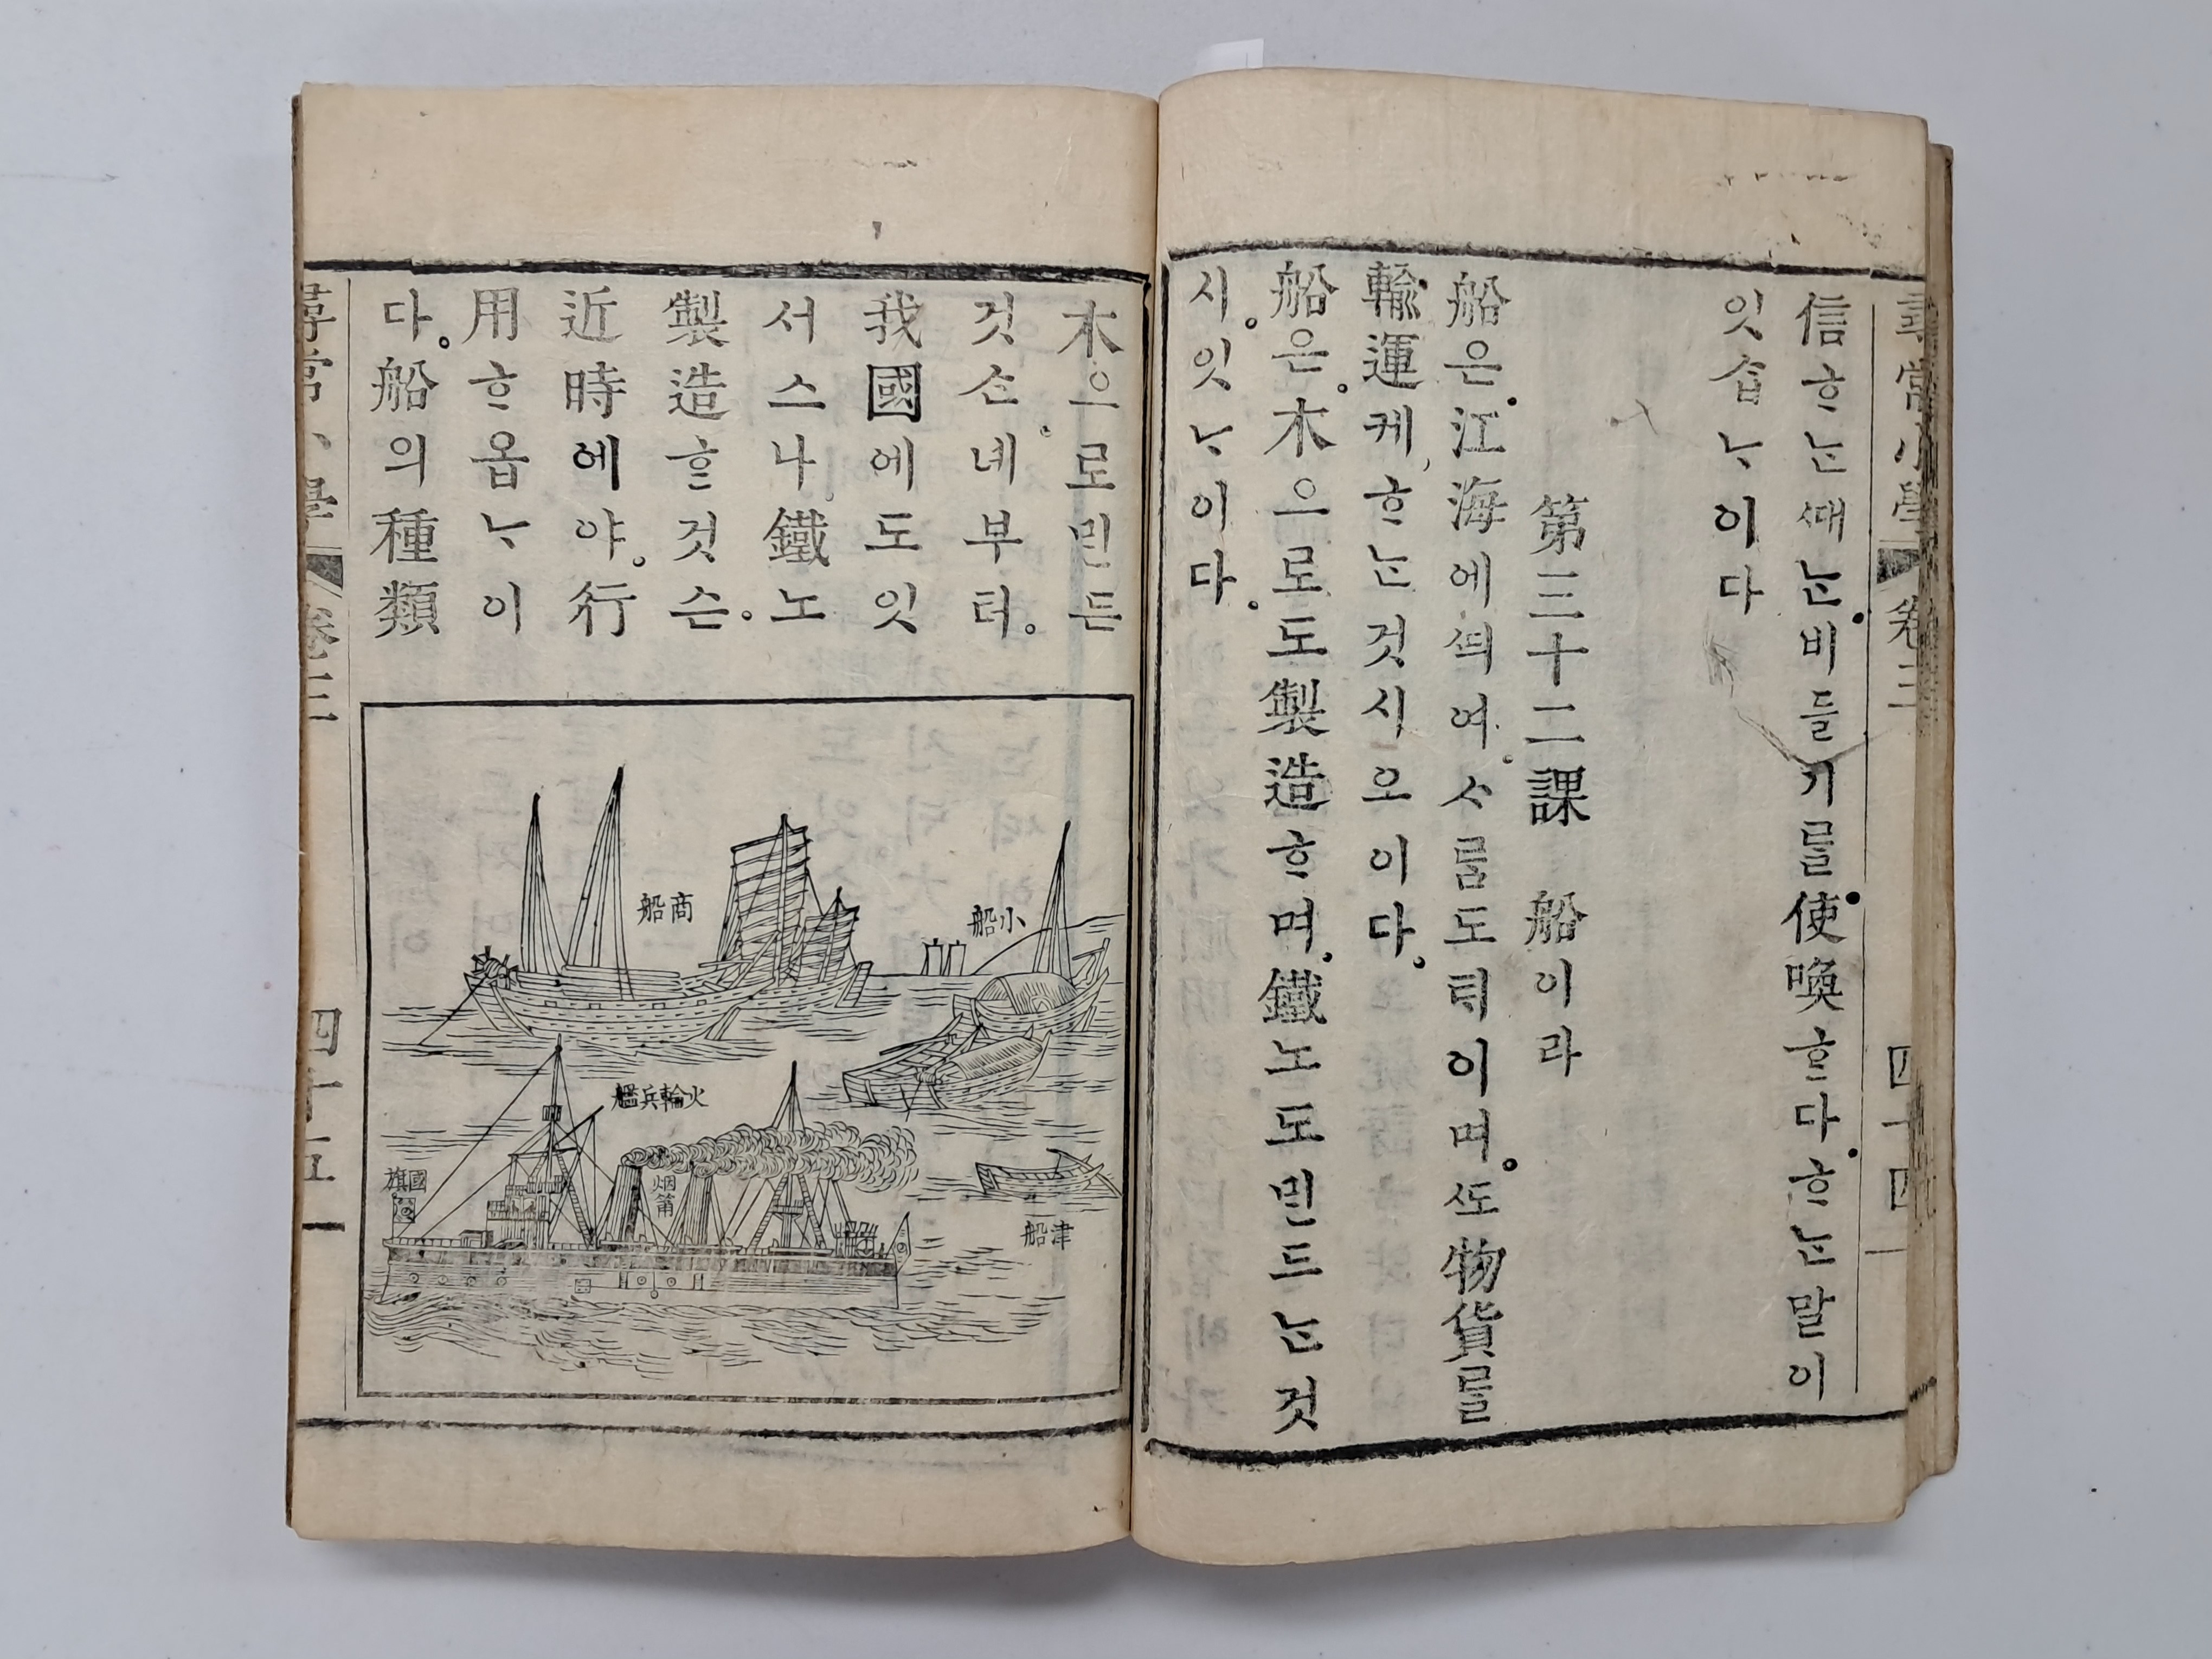 尋常小學 卷三 四十四
信ᄒᆞᄂᆞᆫᄯᅢᄂᆞᆫ。비들기를。使喚ᄒᆞᆫ다。ᄒᆞᄂᆞᆫ말이
잇습ᄂᆞ이다
第三十二課 船이라
船은。江海에ᄯᅴ여。ᄉᆞᄅᆞᆷ도ᄐᆡ이며。ᄯᅩ物貨를
輸運케ᄒᆞᄂᆞᆫ것시오이다。
船은。木으로도製造ᄒᆞ며。鐵노도ᄆᆡᆫ드ᄂᆞᆫ것
시。잇ᄂᆞ이다。
木으로ᄆᆡᆫ든
것슨。녜부터。
我國에도잇
서스나。鐵노
製造ᄒᆞᆫ것슨。
近時에야。行
用ᄒᆞ옵ᄂᆞ이
다。船의種類
小船
商船
火輪兵艦
烟筩
國旗
津船
尋常小學 卷三 四十五